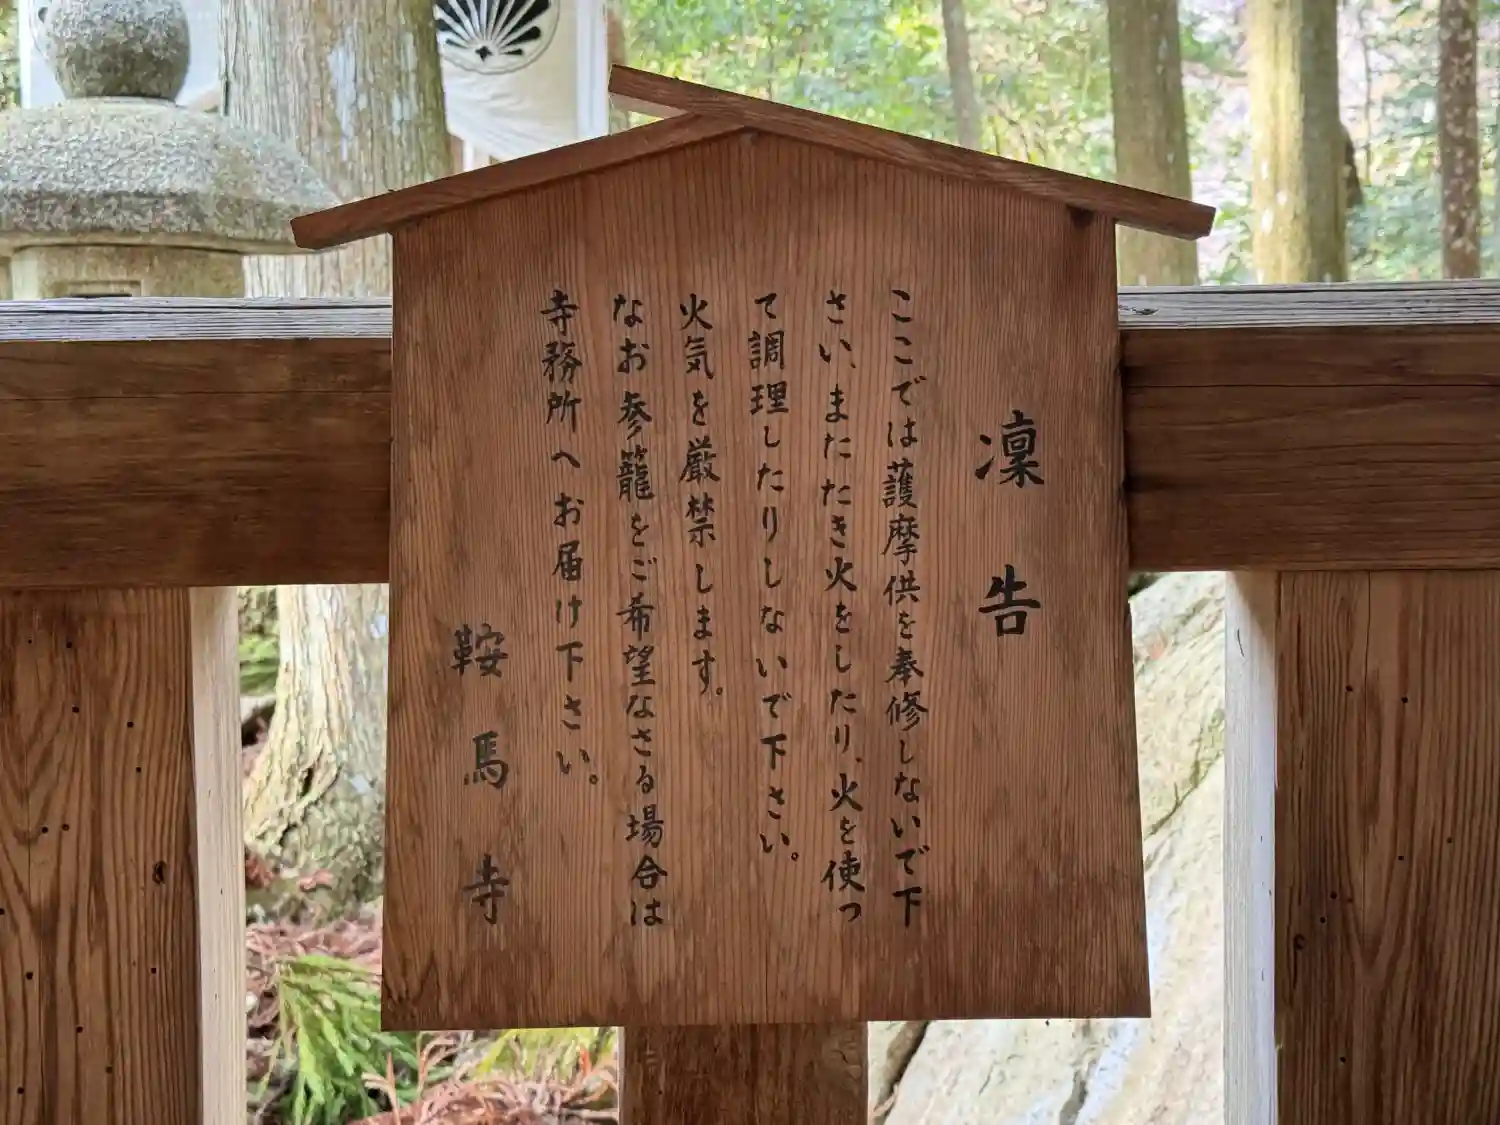 凜告
ここでは護摩供を奉修しないで下
さい、またたき火をしたり、火を使つ
て調理したりしないで下さい。
火気を厳禁します。
なお参籠をご希望なさる場合は
寺務所へお届け下さい。
鞍馬寺